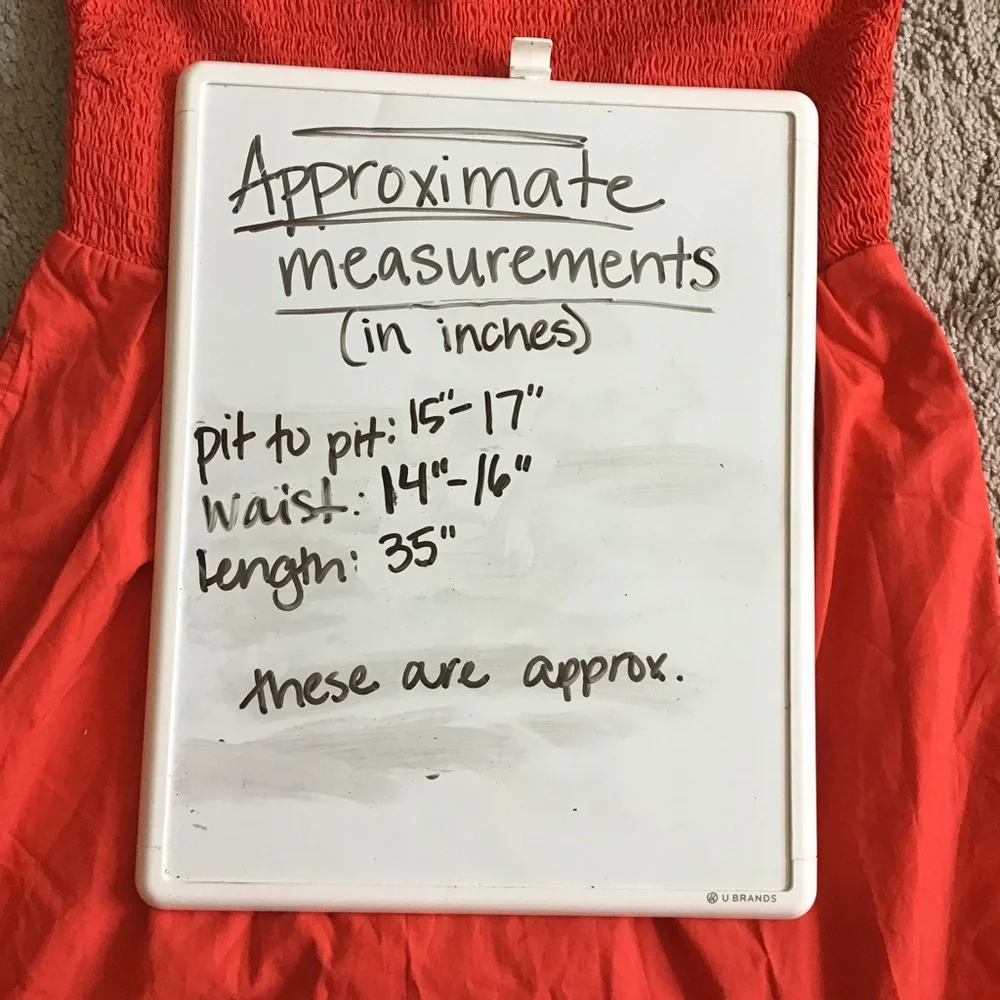 Approximate
measurements
(in inches)
pit to pit: 15"-17"
waist: 14"-16"
length: 35"
these are approx.
U BRANDS